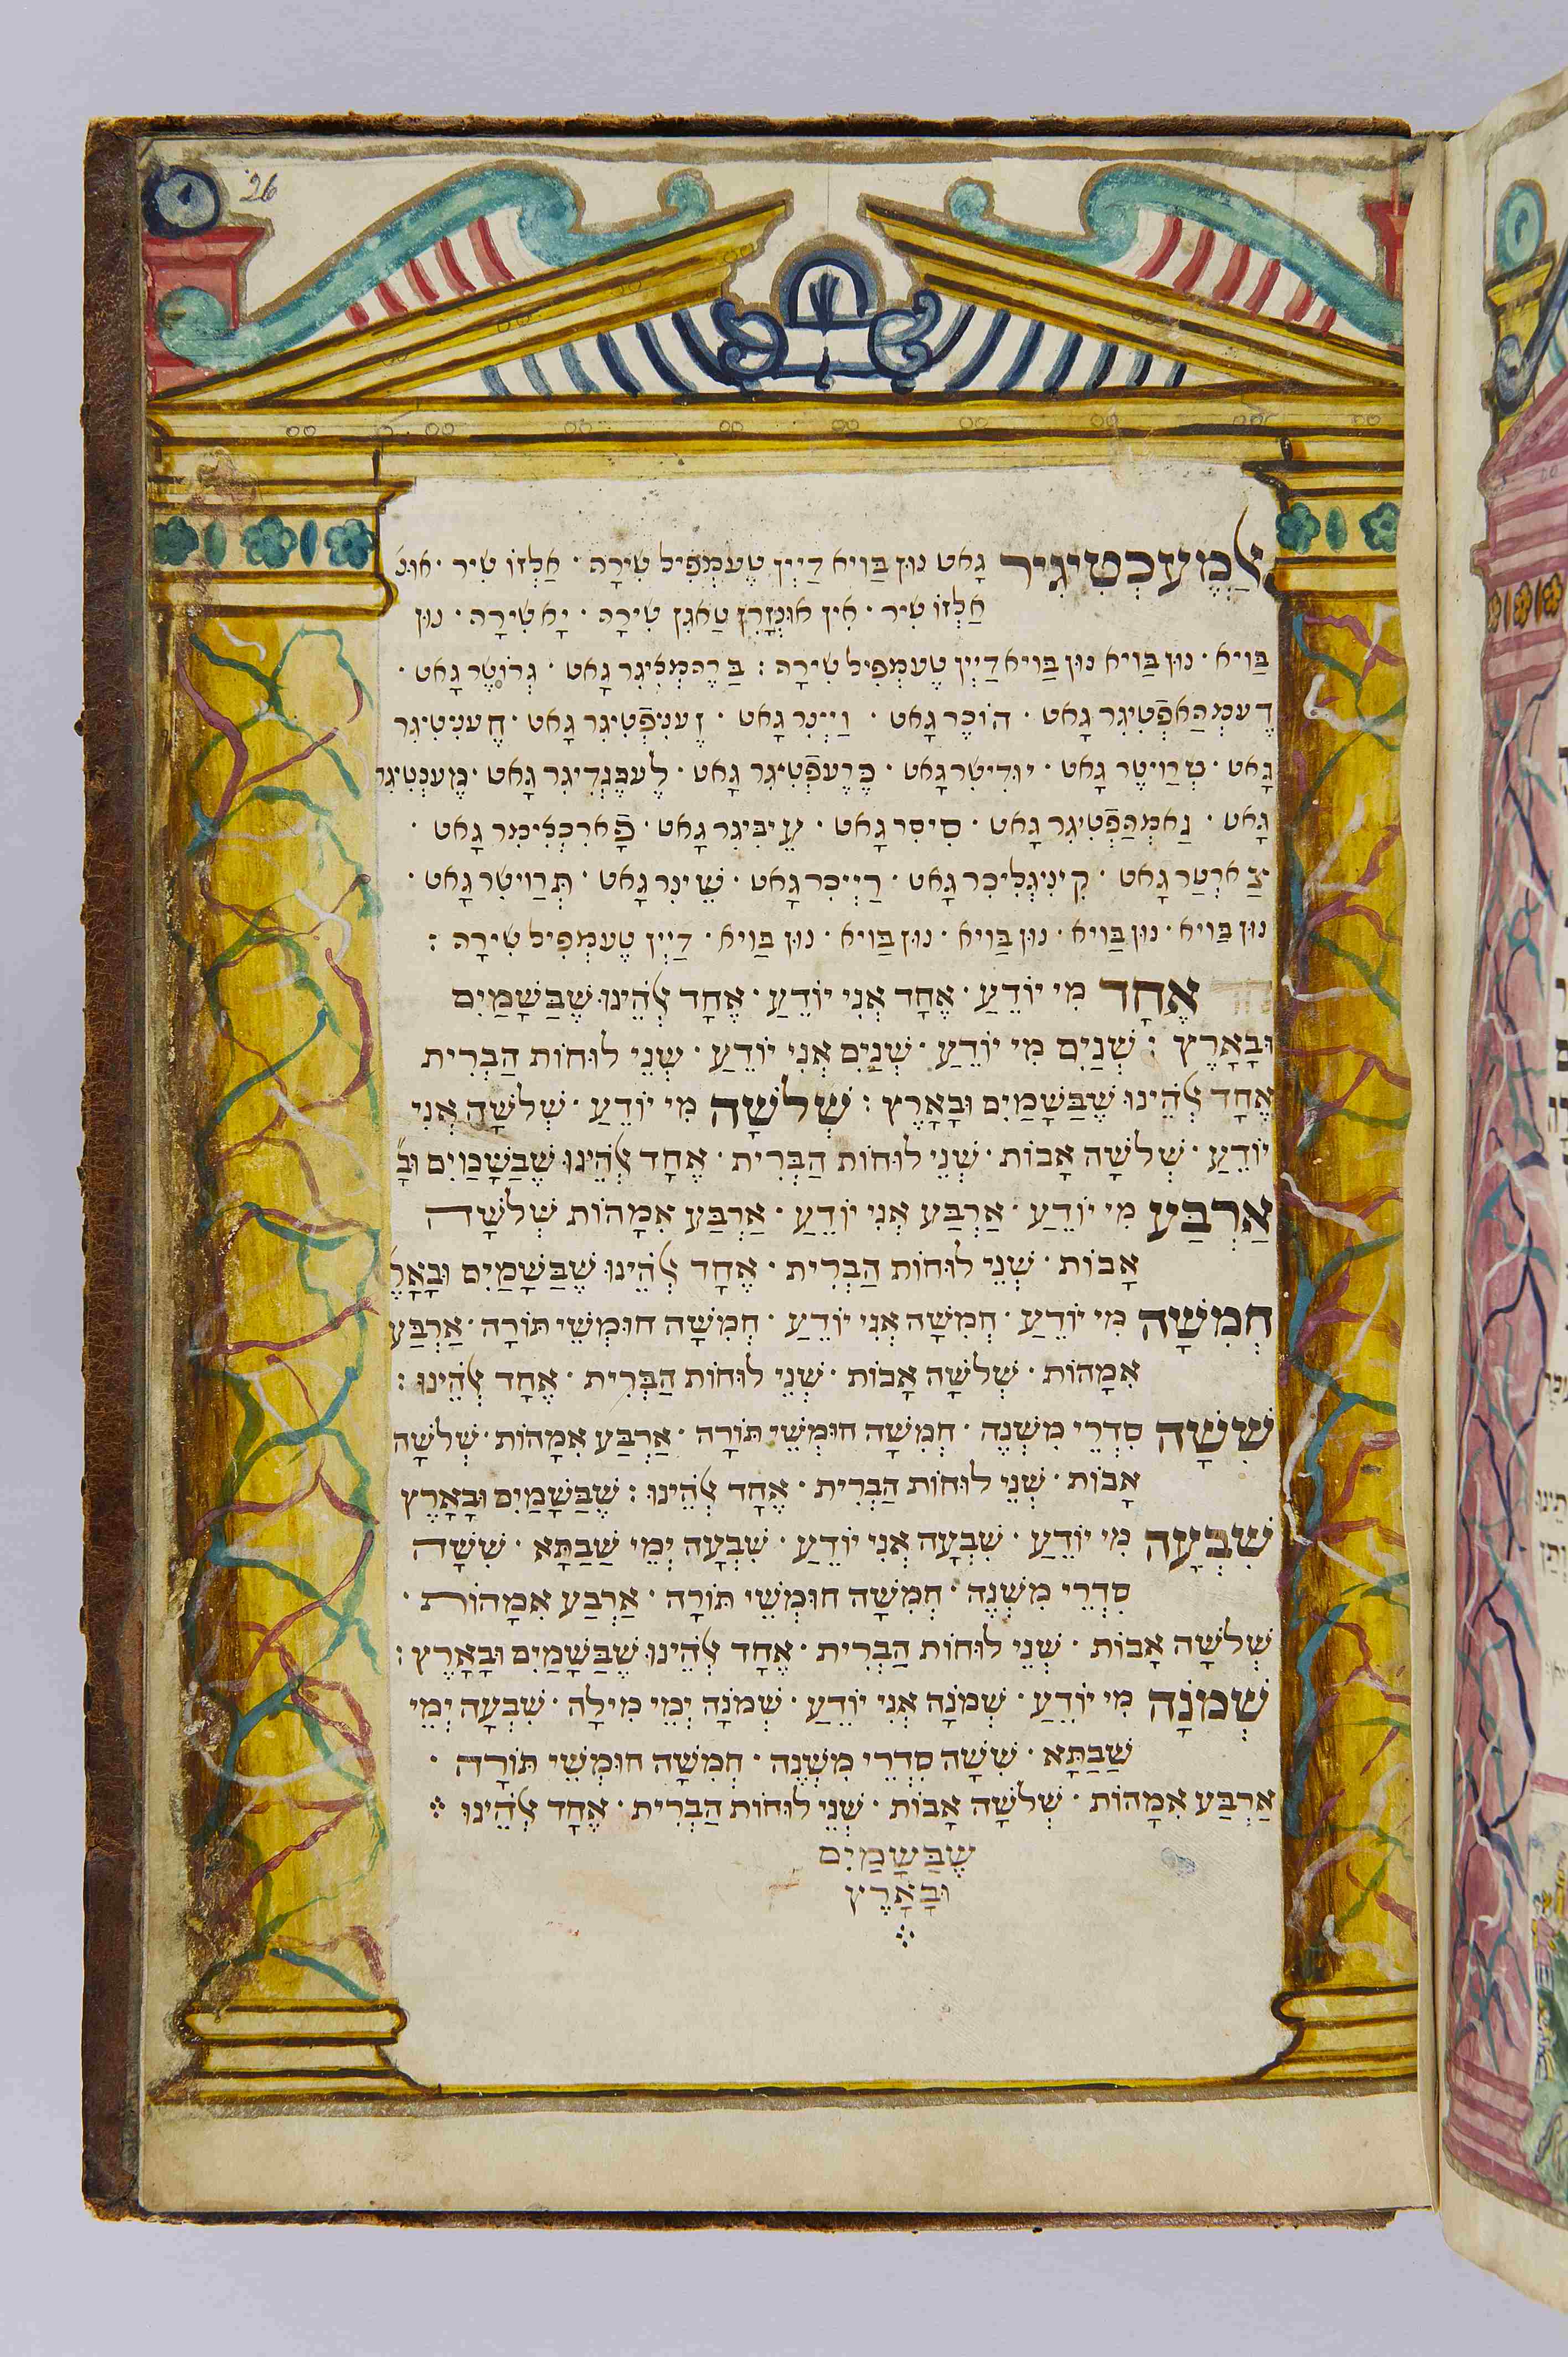 26
אַלְמֶעכְטִיגִיר גָאט נוּן בַּויא דַיְין טֶעמְפִּיל שִׁירָה · אַלְזוֹ שִׁיר · אוּנ
אַלְזוֹ שִׁיר · אִין אוּנְזָרְן טַאגִן שִׁירָה · יָא שִׁירָה · נוּן
בַּויא · נוּן בַּויא נוּן בַּויא דַיְין טֶעמְפִּיל שִׁירָה : בַּרֶהמְלִיגִר גָאט · גְרוֹטֶר גָאט ·
דֶעמְהַאפְֿטִיגִר גָאט · הוֹכֶר גָאט · וַויְינִר גָאט · זֶענִיפְֿטִיגִר גָאט · חֶענִיטִיגִר
גָאט · טְרַוייטֶר גָאט · יוּדִישִׁר גָאט · כְּרֶעפְֿטִיגִר גָאט · לֶעבֶּנְדִיגִר גָאט · מֶעכְטִיגִר
גָאט · נַאמְהַפְֿטִיגִר גָאט · סִיסִר גָאט · עֵיבִּיגִר גָאט · פָֿארכְלִימִר גָאט ·
צַארְטַר גָאט · קִינִיגְלִיכִר גָאט · רַיְיכִר גָאט · שֵׁינִר גָאט · תְּרַוייטִר גָאט ·
נוּן בַּויא · נוּן בַּויא · נוּן בַּויא · נוּן בַּויא · נוּן בַּויא · דַיְין טֶעמְפִּיל שִׁירָה :
אֶחָד מִי יוֹדֵעַ · אֶחָד אֲנִי יוֹדֵעַ · אֶחָד אֱלֹהֵינוּ שֶׁבַּשָּׁמַיִם
וּבָאָרֶץ : שְׁנַיִם מִי יוֹדֵעַ · שְׁנַיִם אֲנִי יוֹדֵעַ · שְׁנֵי לוּחוֹת הַבְּרִית
אֶחָד אֱלֹהֵינוּ שֶׁבַּשָּׁמַיִם וּבָאָרֶץ : שְׁלֹשָׁה מִי יוֹדֵעַ · שְׁלֹשָׁה אֲנִי
יוֹדֵעַ · שְׁלֹשָׁה אָבוֹת · שְׁנֵי לוּחוֹת הַבְּרִית · אֶחָד אֱלֹהֵינוּ שֶׁבַּשָּׁמַיִם וּבָ
אַרְבַּע מִי יוֹדֵעַ · אַרְבַּע אֲנִי יוֹדֵעַ · אַרְבַּע אִמָּהוֹת שְׁלֹשָׁה
אָבוֹת · שְׁנֵי לוּחוֹת הַבְּרִית · אֶחָד אֱלֹהֵינוּ שֶׁבַּשָּׁמַיִם וּבָאָרֶ
חֲמִשָּׁה מִי יוֹדֵעַ · חֲמִשָּׁה אֲנִי יוֹדֵעַ · חֲמִשָּׁה חוּמְשֵׁי תּוֹרָה · אַרְבַּע
אִמָּהוֹת · שְׁלֹשָׁה אָבוֹת · שְׁנֵי לוּחוֹת הַבְּרִית · אֶחָד אֱלֹהֵינוּ :
שִׁשָּׁה סִדְרֵי מִשְׁנָה · חֲמִשָּׁה חוּמְשֵׁי תּוֹרָה · אַרְבַּע אִמָּהוֹת · שְׁלֹשָׁה
אָבוֹת · שְׁנֵי לוּחוֹת הַבְּרִית · אֶחָד אֱלֹהֵינוּ : שֶׁבַּשָּׁמַיִם וּבָאָרֶץ
שִׁבְעָה מִי יוֹדֵעַ · שִׁבְעָה אֲנִי יוֹדֵעַ · שִׁבְעָה יְמֵי שַׁבַּתָּא · שִׁשָּׁה
סִדְרֵי מִשְׁנָה · חֲמִשָּׁה חוּמְשֵׁי תּוֹרָה · אַרְבַּע אִמָּהוֹת ·
שְׁלֹשָׁה אָבוֹת · שְׁנֵי לוּחוֹת הַבְּרִית · אֶחָד אֱלֹהֵינוּ שֶׁבַּשָּׁמַיִם וּבָאָרֶץ :
שְׁמֹנָה מִי יוֹדֵעַ · שְׁמֹנָה אֲנִי יוֹדֵעַ · שְׁמֹנָה יְמֵי מִילָה · שִׁבְעָה יְמֵי
שַׁבַּתָּא · שִׁשָּׁה סִדְרֵי מִשְׁנָה · חֲמִשָּׁה חוּמְשֵׁי תּוֹרָה ·
אַרְבַּע אִמָּהוֹת · שְׁלֹשָׁה אָבוֹת · שְׁנֵי לוּחוֹת הַבְּרִית · אֶחָד אֱלֹהֵינוּ
שֶׁבַּשָּׁמַיִם
וּבָאָרֶץ